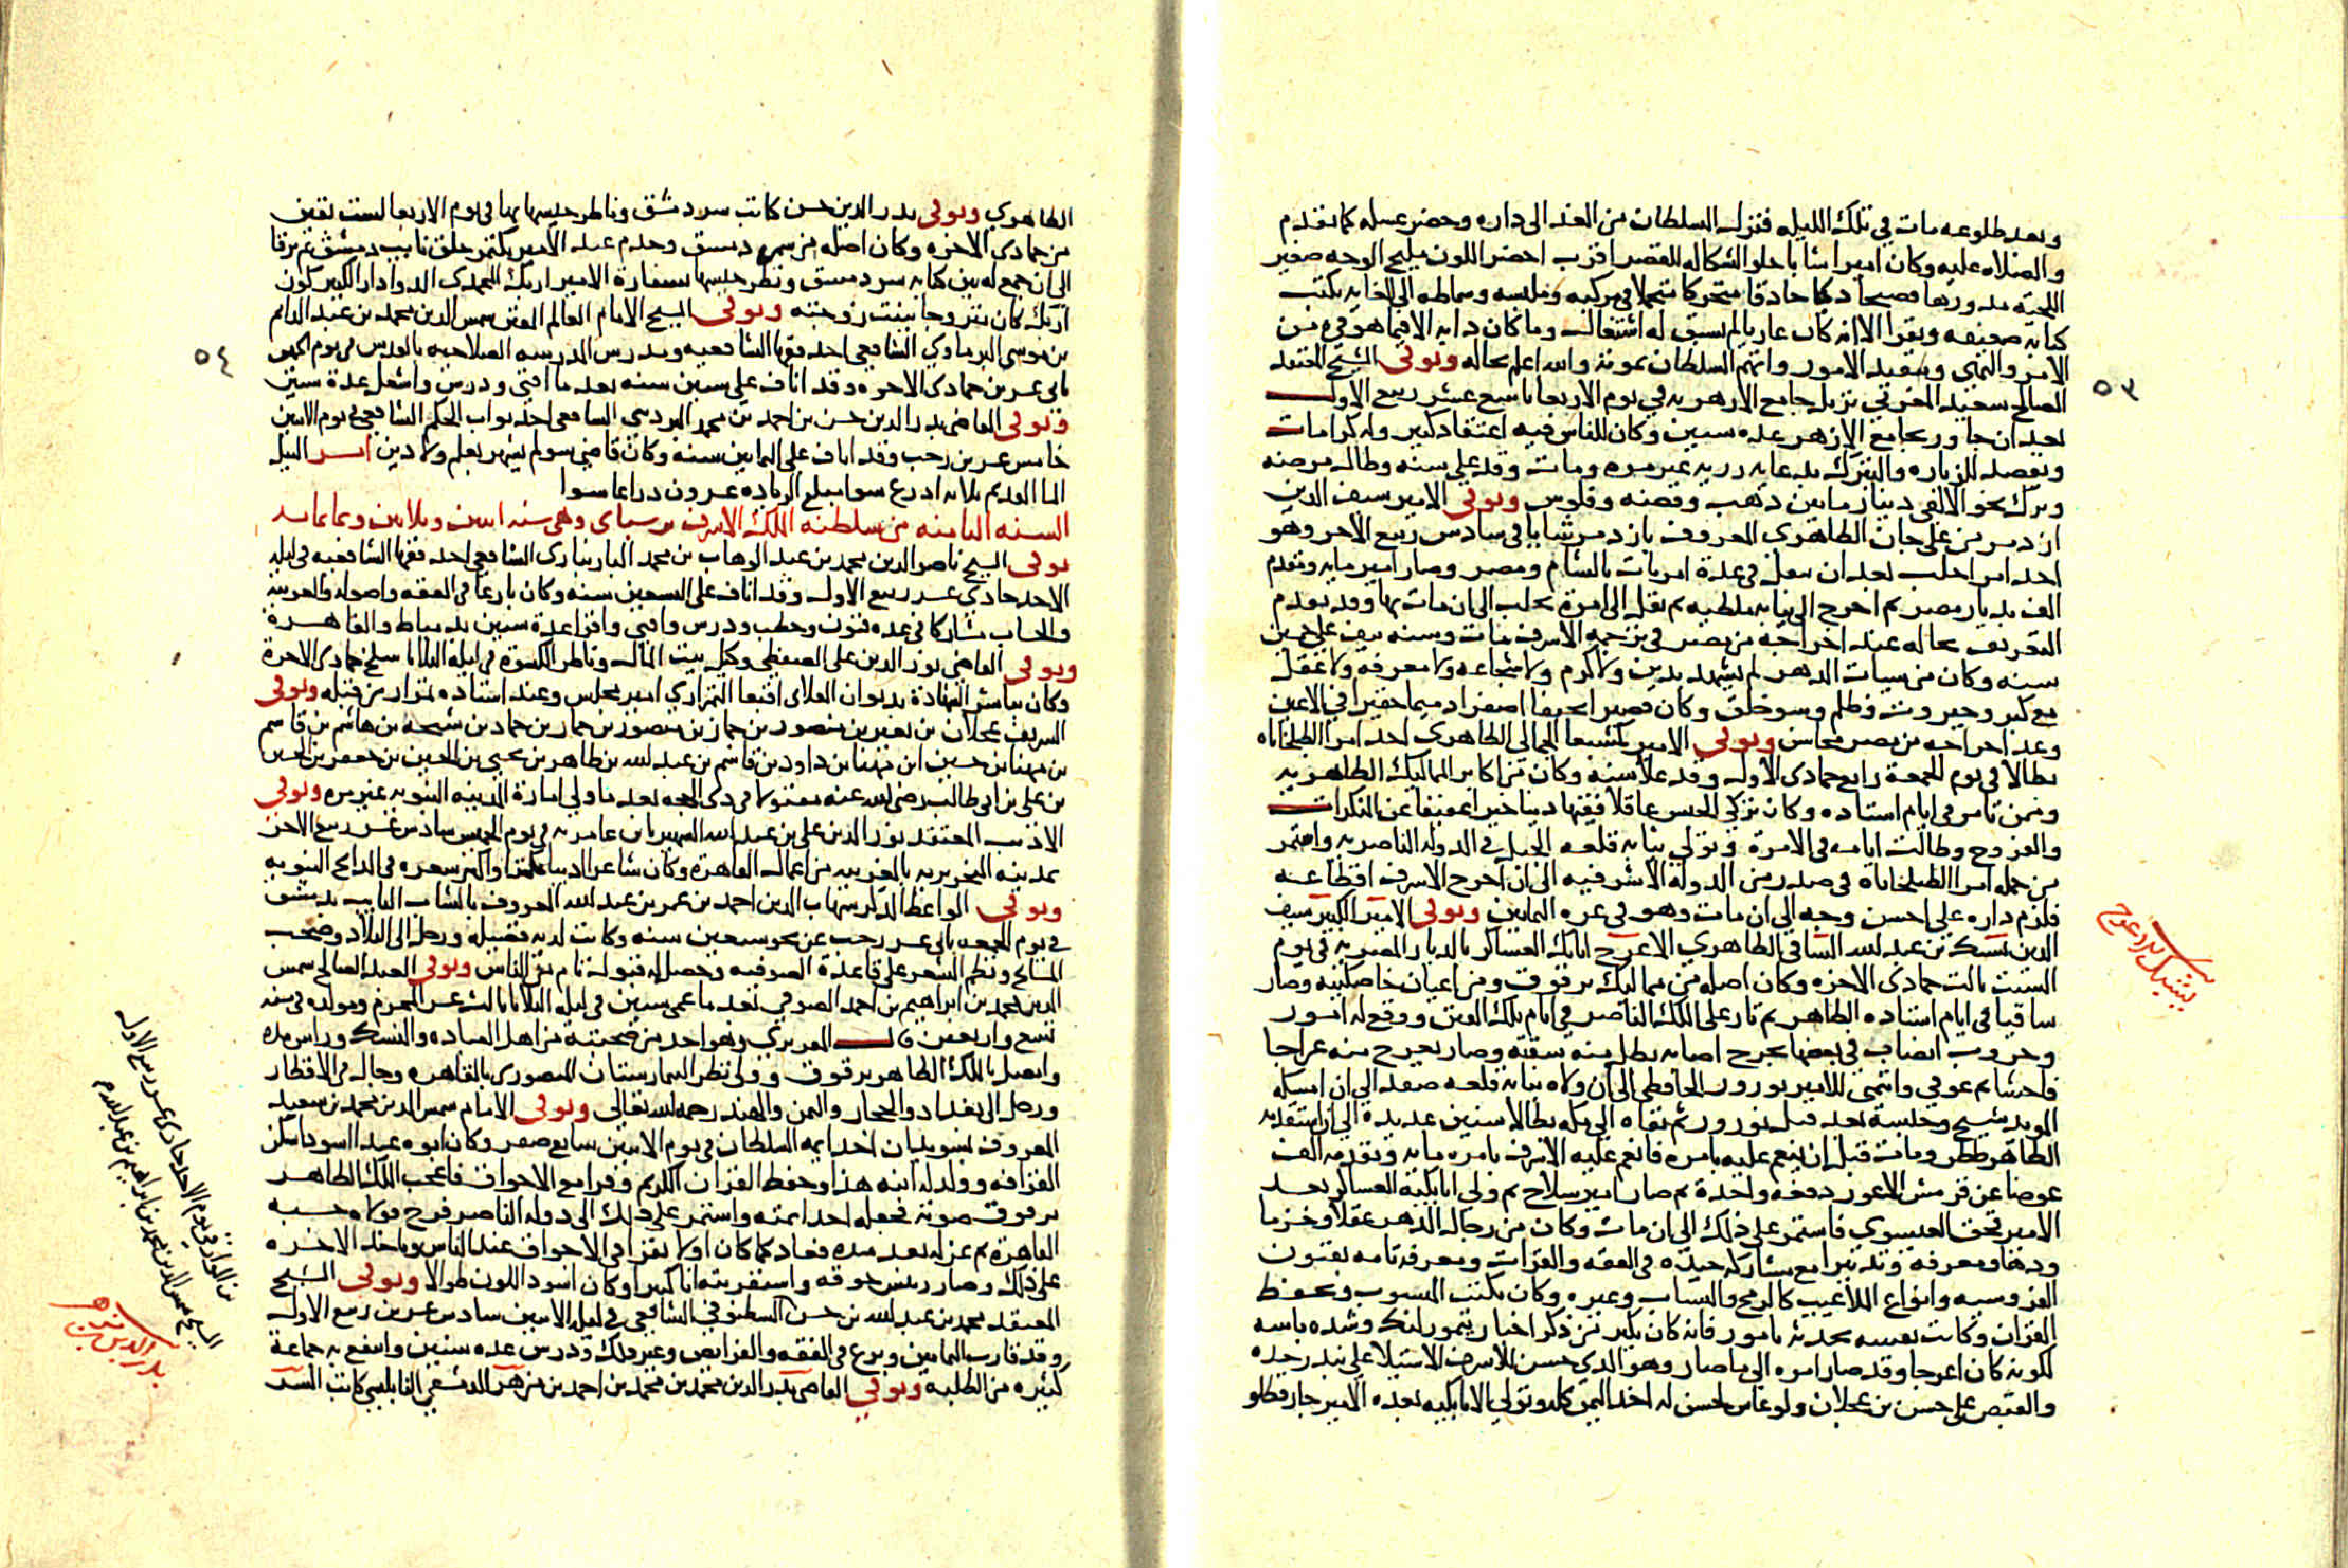 وبعد طلوعه مات في تلك الليله فنزل السلطان من الغد الى داره وحضر غسله كما تقدم
والصلاه عليه وكان اميرا شابا حلو الشكاله للقصر اقرب اخضر اللون مليح الوجه صغير
اللحية مدورها فصيحا ذكيا حاذقا متحركا متجملا في مركبه وملبسه وسماطه الى الغايه يكتب
كتابه ضعيفه ويقرا الا انه كان عاريا لم يسبق له اشتغال وما كان دابه الا فيما هو فيه من
الامر والنهى وتنفيد الامور واتهم السلطان بموته والله اعلم بحاله وتوفى الشيخ المعتقد
الصالح سعيد المغربي نزيل جامع الازهر به في يوم الاربعا تاسع عشر ربيع الاول
بعد ان جاور بجامع الازهر عده سنين وكان للناس فيه اعتقاد كبير وله كرامات
ويقصد للزياره والتبرك بدعايه زرته غير مره ومات وقد علي سنه وطال مرضه
وترك نحو الالفى دينار ما بين ذهب وفضه وفلوس وتوفى الامير سيف الدين
ازدمر من على جان الظاهرى المعروف بازدمر شايا في سادس ربيع الاخر وهو
احد امرا حلب بعد ان تنقل في عدة امريات بالشام ومصر وصار امير مايه ومقدم
الف بديار مصر ثم اخرج الى نيابه ملطيه ثم نقل الى امرة بحلب الى ان مات بها وقد تقدم
التعريف بحاله عند اخراجه من مصر في ترجمه الاشرف مات وسنه نيف على خمسين
سنه وكان من سيات الدهر لم يشهد بدين ولا كرم ولا شجاعه ولا معرفه ولا عقل
مع كبر وجبروت وظلم وسو خلق وكان قصيرا نحيفا اصفر ادميما حقيرا في الاعين
وعد اخراجه من مصر محاسن وتوفي الامير كمشبغا الجمالي الظاهرى احد امرا الطبلخاناه
بطالا في يوم الجمعة رابع جمادى الاول وقد علا سنه وكان من اكابر المماليك الظاهريه
وممن تامر في ايام استاده وكان تركي الجنس عاقلا فقيها دينا خيرا عفيفا عن المنكرات
والفروج وطالت ايامه في الامرة وتولي نيابه قلعه الجبل في الدوله الناصريه واستمر
من جمله امرا الطبلخاناة في صدر من الدوله الاشرفيه الى ان اخرج الاشرف اقطاعه
فلزم داره على احسن وجه الى ان مات وهو في عره الثمانين وتوفى الامير الكبير سيف
الدين يشبك بن عبد الله الساقى الظاهري الاعرج اتابك العساكر بالديار المصريه في يوم
السبت ثالث جمادى الاخره وكان اصله من مماليك برقوق ومن اعيان خاصكيته وصار
ساقيا في ايام استاده الظاهر ثم ثار على الملك الناصر في ايام تلك الفتن ووقع له امور
وحروب انصاب في بعضها بجرح اصابه بطل منه شقته وصار يعرج منه عرجا
فاحشا ثم عوفي وانتمى للامير نوروز الحافظى الى ان ولاه نيابه قلعه صفد الى ان امسكه
المويد شيخ وحبسة بعد قتل نوروز ثم نفاه الى مكه بطالا سنين عديدة الى ان استقدمه
الظاهر ططر ومات قبل ان ينعم عليه بامره فانعم عليه الاشرف بامره مايه وتقدمه الف
عوضا عن قرمش الاعور دفعه واحدة ثم صار امير سلاح ثم ولي اتابكية العساكر بعد
الامير قجق العيسوي فاستمر على ذلك الى ان مات وكان من رجال الدهر عقلا وحزما
ودهاومعرفه وتدبيرا مع مشاركه جيده في الفقه والقرات ومعرفه تامه بفنون
الفروسيه وانواع الملاعيب كالرمح والنشاب وغيره وكان يكتب المنسوب ويحفظ
القران وكانت نفسه تحدثه بامور فانه كان يكثر من ذكر اخبار تيمورلنك وشده باسه
لكونه كان اعرجا وقد صار امره الى ما صار وهو الدي حسن للاشرف الاستيلا على بندر جده
والقبض على حسن بن عجلان ولو عاش لحسن له اخذ اليمن كله وتولي الاتابكيه بعده الامير جار قطلو
٥٣
يشبك الاعرج
الظاهري وتوفى بدر الدين حسن كاتب سر دمشق وناظر جيشها بها في يوم الاربعا لست بقين
من جمادى الاخره وكان اصله من سمرة دمشق وخدم عند الامير بكتمر جلق نايب دمشق ثم ترقا
الى ان جمع له بين كتابه سر دمشق ونظر جيشها بسفارة الامير ازبك المحمدى الدوادار الكبير كون
ازبك كان متزوجا ببنت زوجته وتوفى الشيخ الامام العالم المفنن شمس الدين محمد بن عبد الدايم
بن موسى البرماوي الشافعي احد فقها الشافعيه ومدرس المدرسه الصلاحيه بالقدس في يوم الخميس
ثانى عشرين جمادى الاخره وقد اناف على ستين سنه بعد ما افتى ودرس واشغل عدة سنين
وتوفى القاضى بدر الدين حسن بن احمد بن محمد البردينى الشافعى احد نواب الحكم الشافعي في يوم الاثنين
خامس عشرين رجب وقد اناف على الثمانين سنه وكان قاضى سو لم يشهر بعلم ولا دين امر النيل
الما القديم ثلاثه ادرع سوا مبلغ الزياده عشرون دراعا سوا
السنه الثامنه من سلطنه الملك الاشرف برسباى وهى سنه اثنين وثلاثين وثمانمايه
توفى الشيخ ناصر الدين محمد بن عبد الوهاب بن محمد البارنبارى الشافعي احد فقها الشافعيه في ليله
الاحد حادي عشر ربيع الاول وقد اناف على السبعين سنه وكان بارعا في الفقه واصوله والعربيه
والحساب مشاركا في عده فنون وخطب ودرس وافتى واقرا عدة سنين بدمياط والقاهرة
وتوفى القاضى نور الدين على الصفطي وكيل بيت المال وناظر الكسوة في ليله الثلاثا سلخ جمادى الاخرة
وكان يباشر الشهادة بديوان العلاى اقبغا التمرازي امير مجلس وعند استاده تمراز من قبله وتوفى
الشريف عجلان بن نعير بن منصور بن جماز بن منصور بن جماز بن حماد بن شيحه بن هاشم بن قاسم
بن مهنا بن حسين ابن مهنا بن داود بن قاسم بن عبد الله بن طاهر بن يحيى بن الحسين بن جعفر بن الحسين
بن على بن ابى طالب رضى الله عنه مقتولا في ذى الحجه بعد ما ولي امارة المدينه النبويه غير مره وتوفى
الاديب المعتقد نور الدين على بن عبد الله الشهير بابن عامريه في يوم الخميس سادس عشر ربيع الاخر
بمدينه النحريريه بالغربيه من اعمال القاهرة وكان شاعرا اديبا مكثرا واكثر شعره في المدايح النبويه
وتوفى الواعظ المذكر شهاب الدين احمد بن عمر بن عبد الله المعروف بالشاب التايب بدمشق
في يوم الجمعه ثانى عشر رجب عن نحو سبعين سنه وكانت لديه فضيله ورحل الى البلاد وصحب
المشايخ ونظم الشعر على قاعدة الصوفيه وحصل له قبول تام من الناس وتوفى العبد الصالح شمس
الدين محمد بن ابراهيم بن احمد الصوفي بعد ما عمى سنين في ليله الثلاثا ثالث عشر المحرم ومولده في سنه
تسع واربعين قال المقريزي وهو احد من صحبته من اهل العباده والنسك وراس مده
واتصل بالملك الظاهر برقوق وولى نظر البيمارستان المنصورى بالقاهره وجال في الاقطار
ورحل الى بغداد والحجاز واليمن والهند رحمه الله تعالى وتوفى الامام شمس الدين محمد بن سعيد
المعروف بسويدان احد ايمه السلطان في يوم الاثنين سابع صفر وكان ابوه عبدا اسودا سكن
القرافه وولد له ابنه هذا وحفظ القران الكريم وقرا مع الاجواق فاعجب الملك الظاهر
برقوق صوته فجعله احد ايمته واستمر على ذلك الى دوله الناصر فرج فولاه حسبه
القاهرة ثم عزله بعد مده فعاد كما كان اولا يقرا في الاجواق عند الناس وياخد الاجره
على ذلك وصار رييس جوقه واستقريته انا كثيرا وكان اسود اللون طوالا وتوفى الشيخ
المعتقد محمد بن عبد الله بن حسن الشطنوفي الشافعي في ليله الاثنين سادس عشرين ربيع الاول
وقد قارب الثمانين وبرع في الفقه والفرايض وغير ذلك ودرس عده سنين وانتفع به جماعة
كثيره من الطلبه وتوفي القاضى بدر الدين محمد بن محمد بن احمد بن مزهر الدمشقي النابلسي كاتب السر
٥٤
في يوم الاحد حادى عشر ربيع الاول
الشيخ شمس الدين محمد بن ابراهيم بن عبد الله
بدر الدين بن مزهر